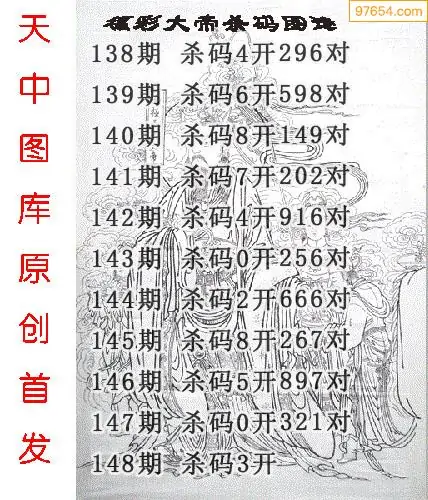 97654.com
福彩大帝杀码图谜
138期 杀码4开296对
139期 杀码6开598对
140期 杀码8开149对
141期 杀码7开202对
142期 杀码4开916对
143期 杀码0开256对
144期 杀码2开666对
145期 杀码8开267对
146期 杀码5开897对
147期 杀码0开321对
148期 杀码3开
天中图库原创首发